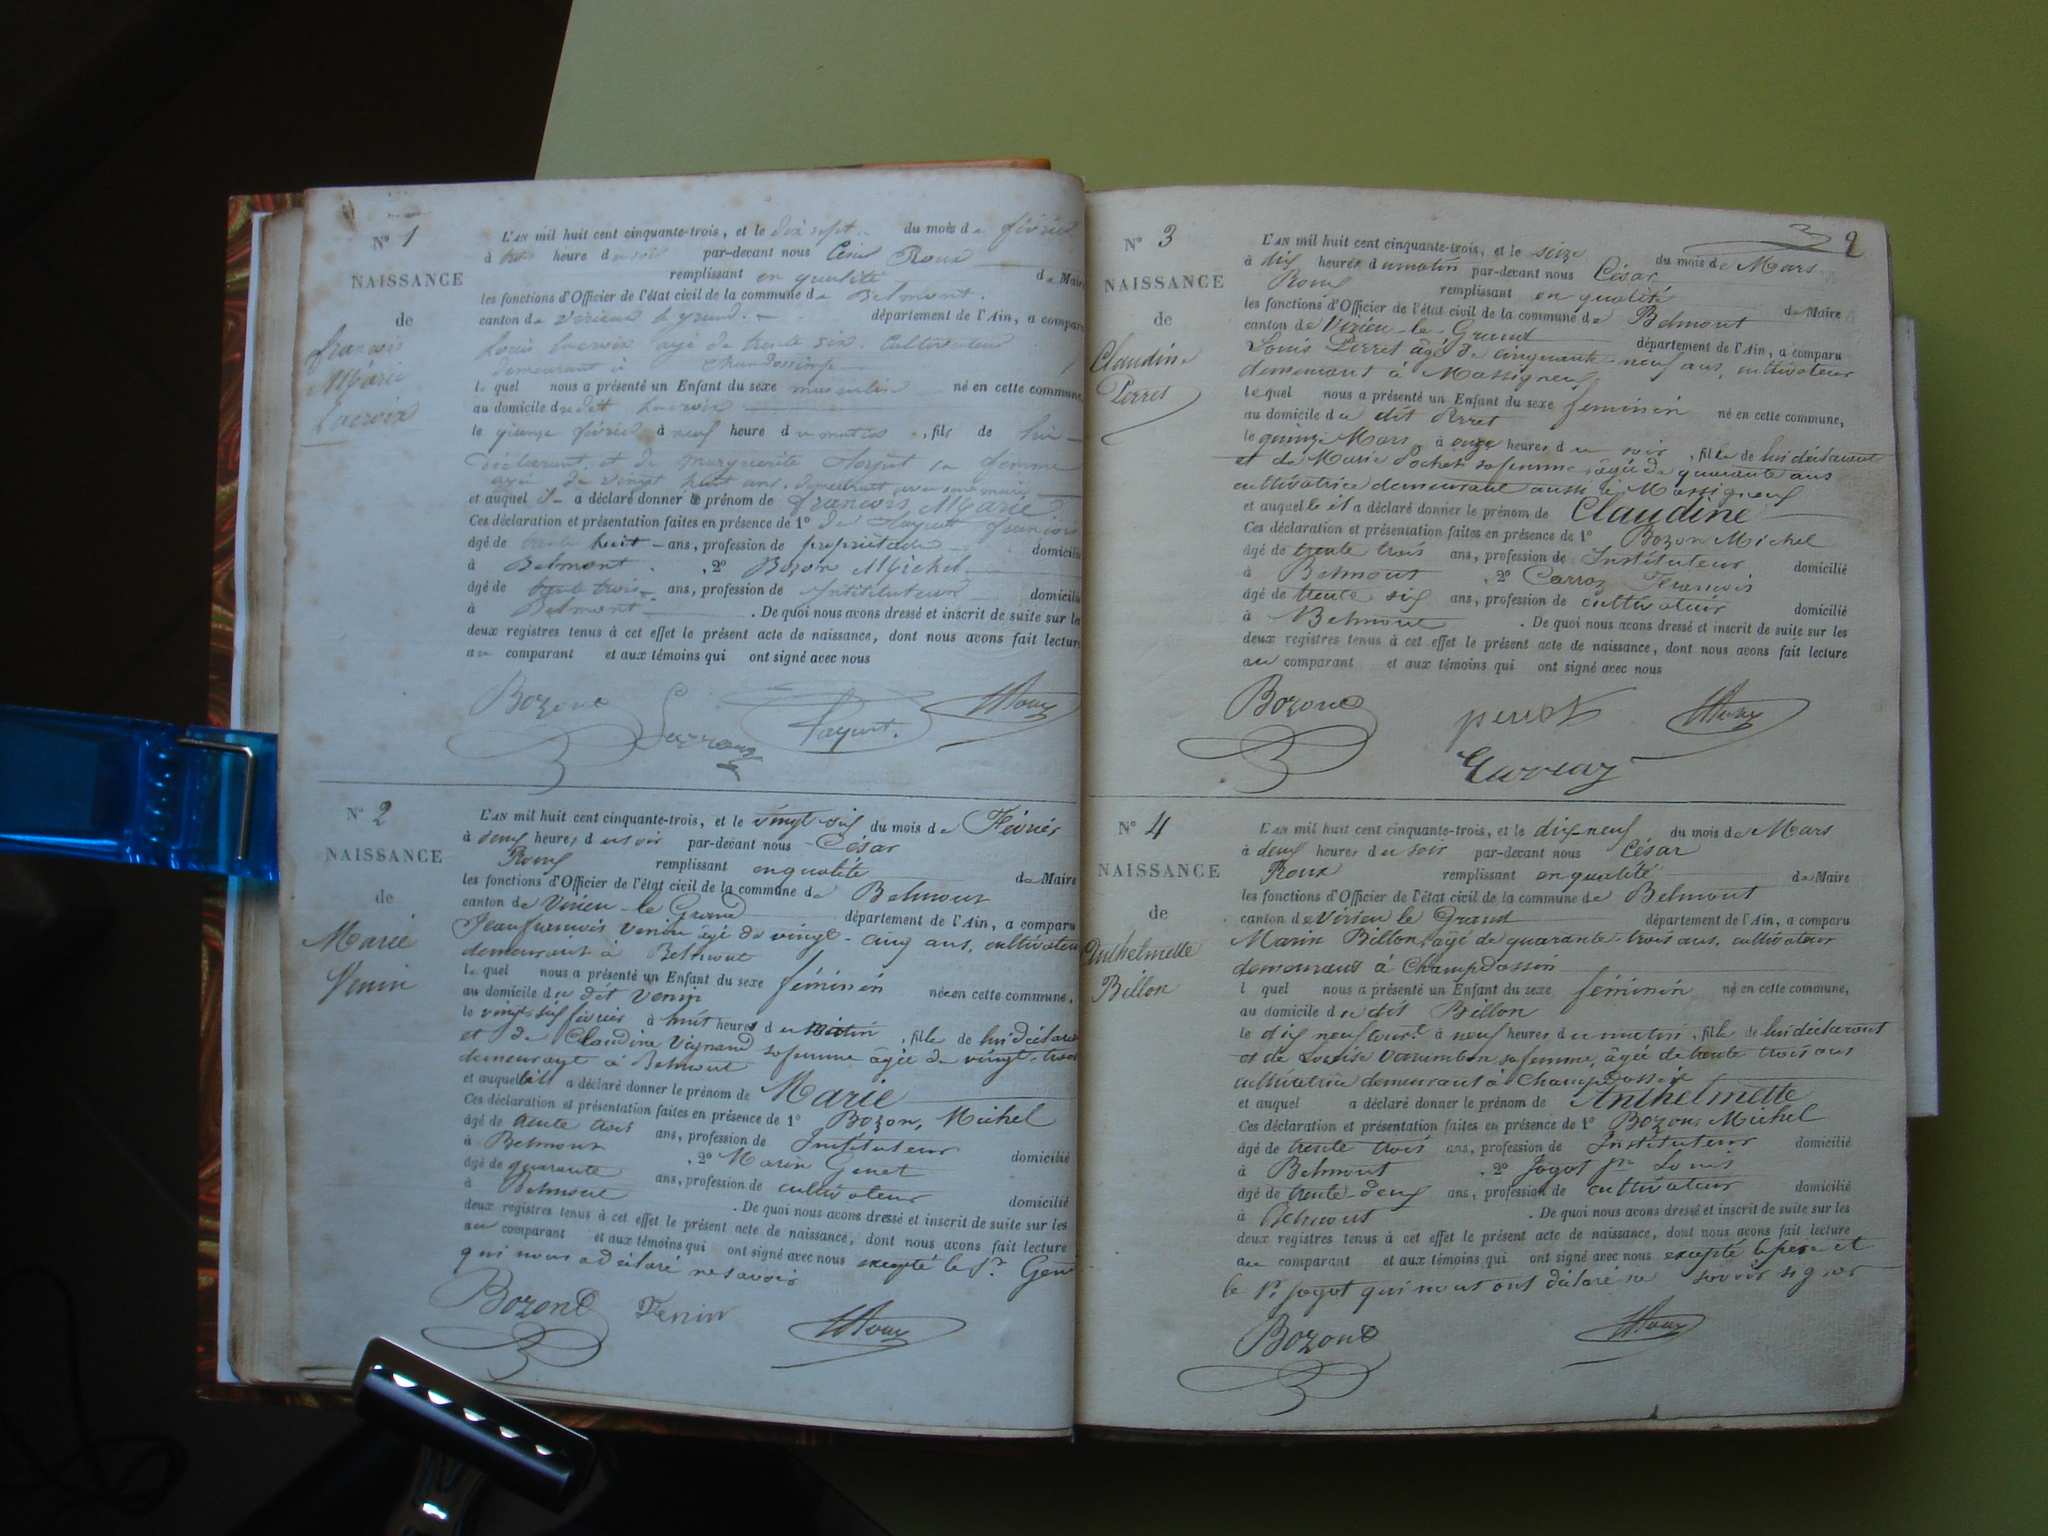 N° 1
NAISSANCE
de
françois
Marie
Lacroix
L'AN mil huit cent cinquante-trois, et le dix sept du mois de février
à trois heure du soir par-devant nous César Roux
remplissant en qualité de Maire
les fonctions d'Officier de l'état civil de la commune de Belmont.
canton de virieu le grand. département de l'Ain, a comparu
Louis Lacroix âgé de trente six. Cultivateur
demeurant à
le quel nous a présenté un Enfant du sexe masculin né en cette commune,
au domicile du dit Lacroix
le quinze février à neuf heure du matin, fils de lui
déclarant et de Marguerite sa femme
agée de vingt huit ans. demeurant
et auquel il a déclaré donner le prénom de françois, Marie
Ces déclaration et présentation faites en présence de 1° françois
âgé de trente huit ans, profession de propriétaire domicilié
à Belmont. , 2° Bozon Michel.
âgé de trente trois ans, profession de Instituteur domicilié
à Belmont . De quoi nous avons dressé et inscrit de suite sur les
deux registres tenus à cet effet le présent acte de naissance, dont nous avons fait lecture
au comparant et aux témoins qui ont signé avec nous
Bozon Roux
N° 2
NAISSANCE
de
Marie
Venin
L'AN mil huit cent cinquante-trois, et le vingt-six du mois de Février
à deux heures du soir par-devant nous César
Roux remplissant en qualité de Maire
les fonctions d'Officier de l'état civil de la commune de Belmont
canton de Virieu-le-Grand département de l'Ain, a comparu
Jean françois Venin âgé de vingt-cinq ans, cultivateur
demeurant à Belmont
le quel nous a présenté un Enfant du sexe féminin née en cette commune,
au domicile du dit Venin
le vingt six février à huit heures du matin, fille de lui déclarant
et de Claudine Vignand sa femme âgée de vingt-trois
demeurant à Belmont
et auquelle il a déclaré donner le prénom de Marie
Ces déclaration et présentation faites en présence de 1° Bozon, Michel
âgé de trente trois ans, profession de Instituteur domicilié
à Belmont , 2° Marin Genet
âgé de quarante ans, profession de cultivateur domicilié
à Belmont . De quoi nous avons dressé et inscrit de suite sur les
deux registres tenus à cet effet le présent acte de naissance, dont nous avons fait lecture
au comparant et aux témoins qui ont signé avec nous excepté le Sr. Genet
qui nous a déclaré ne savoir
Bozon Venin Roux
2
N° 3
NAISSANCE
de
Claudine
Perret
L'AN mil huit cent cinquante-trois, et le seize du mois de Mars
à dix heures du matin par-devant nous César
Roux remplissant en qualité de Maire
les fonctions d'Officier de l'état civil de la commune de Belmont
canton de Virieu-le-Grand département de l'Ain, a comparu
Louis Perret âgé de cinquante-neuf ans, cultivateur
demeurant à Massigneux
le quel nous a présenté un Enfant du sexe féminin né en cette commune,
au domicile du dit Perret
le quinze Mars à onze heures du soir, fille de lui déclarant
et de Marie Pochet sa femme âgée de quarante ans
cultivatrice demeurant aussi à Massigneux
et auquelle il a déclaré donner le prénom de Claudine
Ces déclaration et présentation faites en présence de 1° Bozon Michel
âgé de trente trois ans, profession de Instituteur domicilié
à Belmont , 2° Carraz François
âgé de trente six ans, profession de cultivateur domicilié
à Belmont . De quoi nous avons dressé et inscrit de suite sur les
deux registres tenus à cet effet le présent acte de naissance, dont nous avons fait lecture
au comparant et aux témoins qui ont signé avec nous
Bozon perret Roux
Carraz
N° 4
NAISSANCE
de
Anthelmette
Billon
L'AN mil huit cent cinquante-trois, et le dix-neuf du mois de Mars
à deux heures du soir par-devant nous César
Roux remplissant en qualité de Maire
les fonctions d'Officier de l'état civil de la commune de Belmont
canton de Virieu le Grand département de l'Ain, a comparu
Marin Billon, âgé de quarante-trois ans, cultivateur
demeurant à Champdossin
l quel nous a présenté un Enfant du sexe féminin né en cette commune,
au domicile du dit Billon
le dix neuf court à neuf heures du matin, fille de lui déclarant
et de Louise Varambon sa femme, âgée de trente trois ans
cultivatrice demeurant à Champdossin
et auquel a déclaré donner le prénom de Anthelmette
Ces déclaration et présentation faites en présence de 1° Bozon Michel
âgé de trente trois ans, profession de Instituteur domicilié
à Belmont , 2° Jogot Louis
âgé de trente-deux ans, profession de cultivateur domicilié
à Belmont . De quoi nous avons dressé et inscrit de suite sur les
deux registres tenus à cet effet le présent acte de naissance, dont nous avons fait lecture
au comparant et aux témoins qui ont signé avec nous excepté le père et
le Sr Jogot qui nous ont déclaré ne savoir signer
Bozon Roux